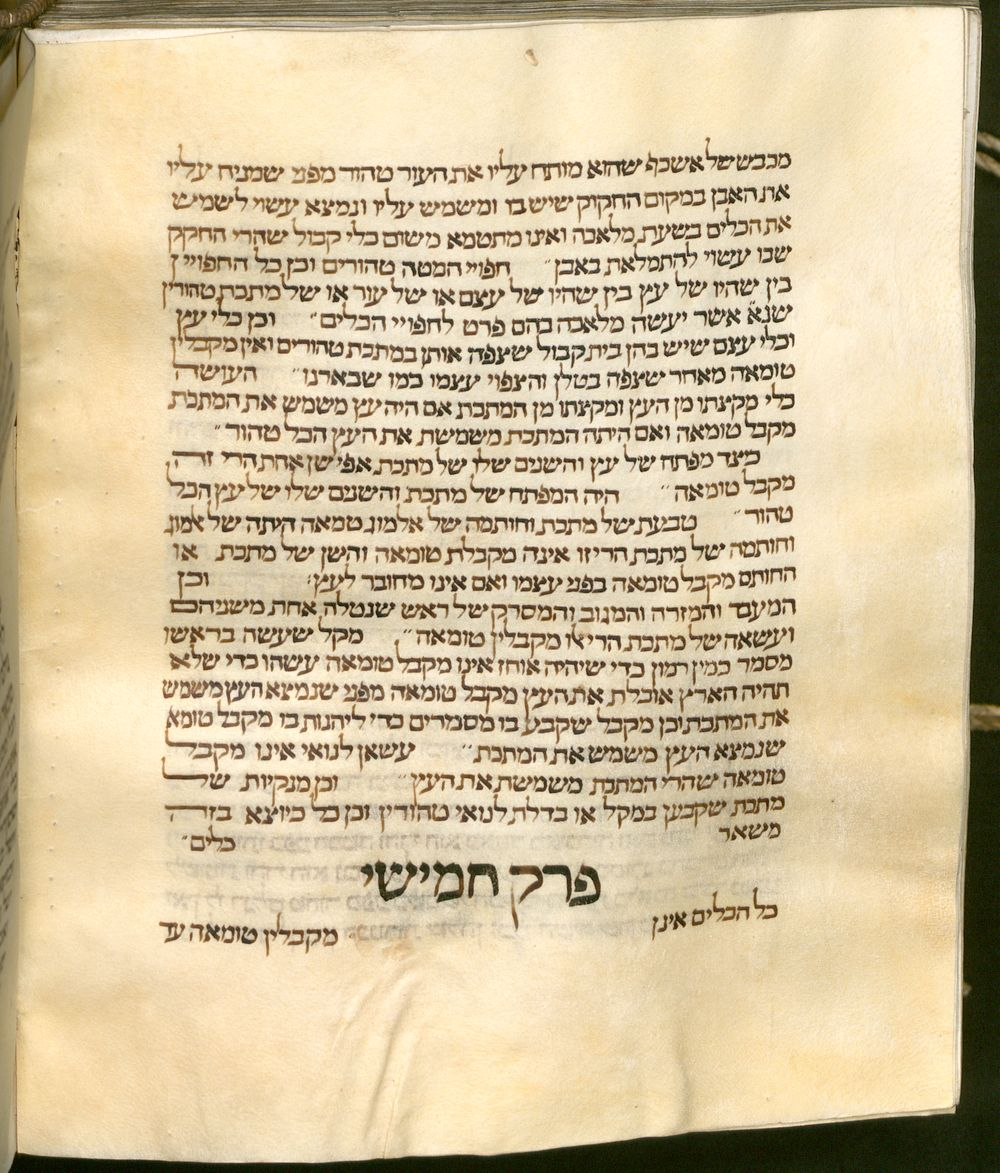 מכבש של אשכף שהוא מותח עליו את העור טהור מפני שמניח עליו
את האבן במקום החקוק שיש בו ומשמש עליו ונמצא עשוי לשמיש
את הכלים בשעת מלאכה ואינו מתטמא משום כלי קבול שהרי החקק
שבו עשוי להתמלאת באבן״ חפויי המטה טהורים וכן כל החפויין
בין שהיו של עץ בין שהיו של עצם או של עור או של מתכת טהורין
שנא׳ אשר יעשה מלאכה בהם פרט לחפויי הכלים״ וכן כלי עץ
וכלי עצם שיש בהן בית קבול שצפה אותן במתכת טהורים ואין מקבלין
טומאה מאחר שצפה בטלן והצפוי עצמו כמו שבארנו״ העושה
כלי מקצתו מן העץ ומקצתו מן המתכת אם היה עץ משמש את המתכת
מקבל טומאה ואם היתה המתכת משמשת את העץ הכל טהור״
כיצד מפתח של עץ והשנים שלו של מתכת אפי׳ שן אחת הרי זה
מקבל טומאה״ היה המפתח של מתכת והשנים שלו של עץ הכל
טהור״ טבעת של מתכת וחותמה של אלמוג טמאה היתה של אלמוג
וחותמה של מתכת הרי זו אינה מקבלת טומאה והשן של מתכת או
החותם מקבל טומאה בפני עצמו ואם אינו מחובר לעץ׳ וכן
המעבד והמזרה והמגוב והמסרק של ראש שנטלה אחת משניהם
ועשאה של מתכת הרי אלו מקבלין טומאה״ מקל שעשה בראשו
מסמר כמין רמון כדי שיהיה אוחז אינו מקבל טומאה עשהו כדי שלא
תהיה הארץ אוכלת את העץ מקבל טומאה מפני שנמצא העץ משמש
את המתכת וכן מקבל שקבע בו מסמרים כדי ליהנות בו מקבל טומא
שנמצא העץ משמש את המתכת״ עשאן לנואי אינו מקבל
טומאה שהרי המתכת משמשת את העץ״ וכן מנקיות של
מתכת שקבען במקל או בדלת לנואי טהורין וכן כל כיוצא בזה
משאר כלים״
פרק חמישי
כל הכלים אינן מקבלין טומאה עד